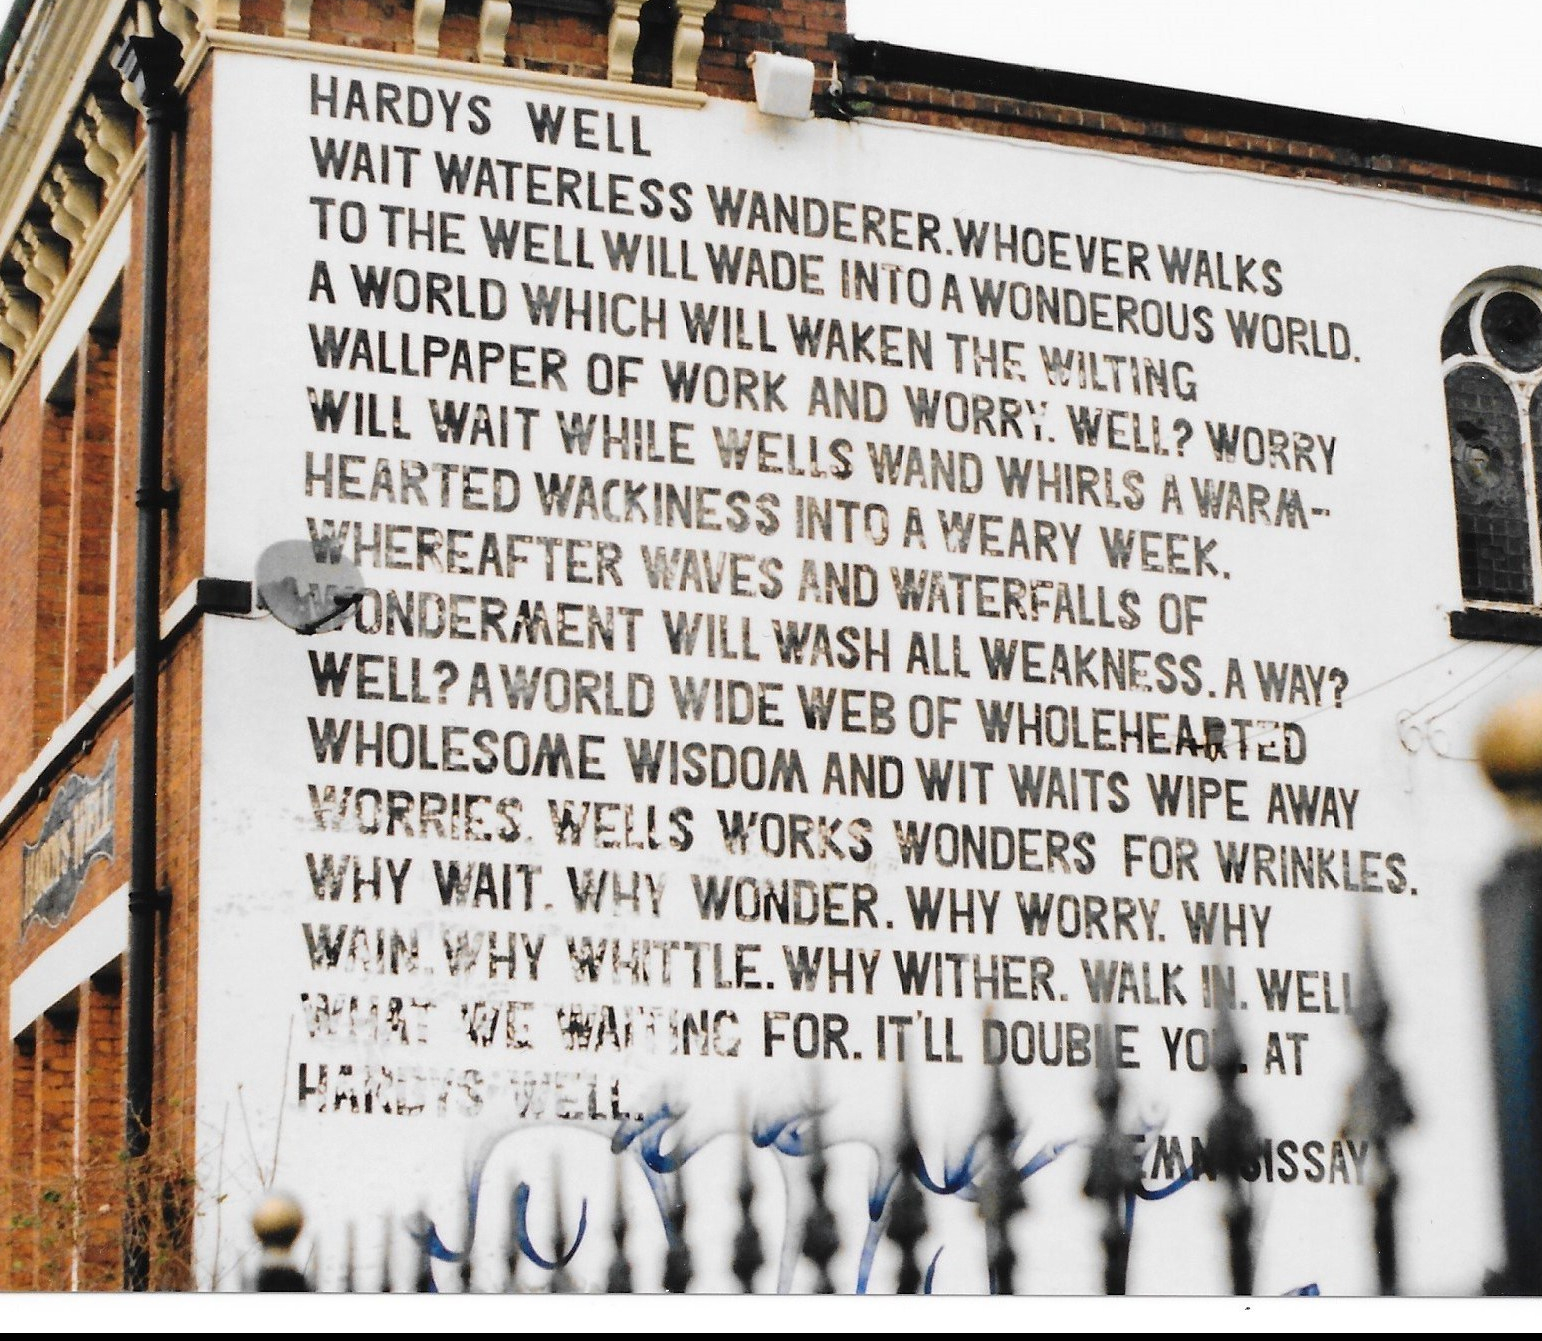 HARDYS WELL
WAIT WATERLESS WANDERER. WHOEVER WALKS
TO THE WELL WILL WADE INTO A WONDEROUS WORLD.
A WORLD WHICH WILL WAKEN THE WILTING
WALLPAPER OF WORK AND WORRY. WELL? WORRY
WILL WAIT WHILE WELLS WAND WHIRLS A WARM-
HEARTED WACKINESS INTO A WEARY WEEK.
WHEREAFTER WAVES AND WATERFALLS OF
WONDERMENT WILL WASH ALL WEAKNESS. A WAY?
WELL? A WORLD WIDE WEB OF WHOLEHEARTED
WHOLESOME WISDOM AND WIT WAITS WIPE AWAY
WORRIES. WELLS WORKS WONDERS FOR WRINKLES.
WHY WAIT. WHY WONDER. WHY WORRY. WHY
WAIN. WHY WHITTLE. WHY WITHER. WALK IN. WELL
WHAT WE WAITING FOR. IT'LL DOUBLE YOU. AT
HARDYS WELL.
EMN SISSAY
HARDYS WELL